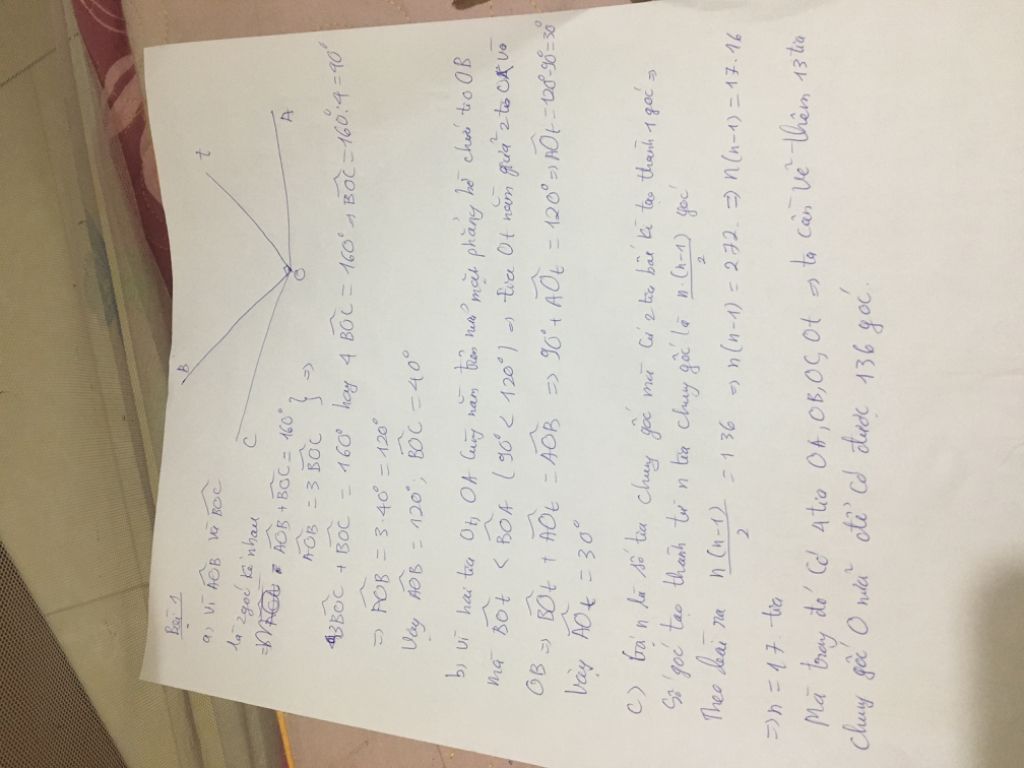 Bài 1
a) Vì AOB và BOC
là 2 góc kề nhau
=> AOB + BOC = 160°
AOB = 3 BOC } =>
B
C
O
t
A
3BOC + BOC = 160° hay 4 BOC = 160° => BOC = 160°:4 = 40°
=> AOB = 3.40° = 120°
Vậy AOB = 120°; BOC = 40°
b) Vì hai tia Ot, OA cùng nằm trên nửa mặt phẳng bờ chứa tia OB
mà BOt < BOA (90° < 120°) => tia Ot nằm giữa 2 tia OA và
OB => BOt + AOt = AOB => 90° + AOt = 120° => AOt = 120°-90°=30°
Vậy AOt = 30°
c) Gọi n là số tia chung gốc mà cứ 2 tia bất kì tạo thành 1 góc =>
Số góc tạo thành từ n tia chung gốc là n.(n-1)/2 góc
Theo bài ra n(n-1)/2 = 136 => n(n-1) = 272 => n(n-1) = 17.16
=> n = 17 tia
Mà trong đó có 4 tia OA, OB, OC, Ot => ta cần vẽ thêm 13 tia
chung gốc O nữa để có được 136 góc.